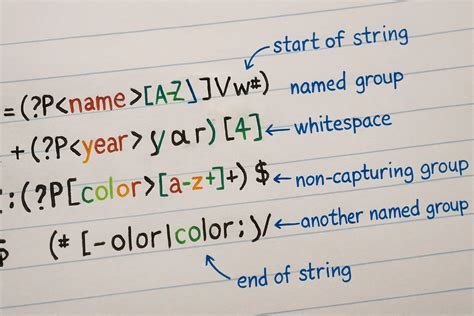 start of string
= (?P<name>[A-Z⌋]Vw#) named group
+ (?P<year> yar) [4] ← whitespace
:(?P[color>[a-z+]+) $ ← non-capturing group
(# [-olor|color:y/ ← another named group
end of string